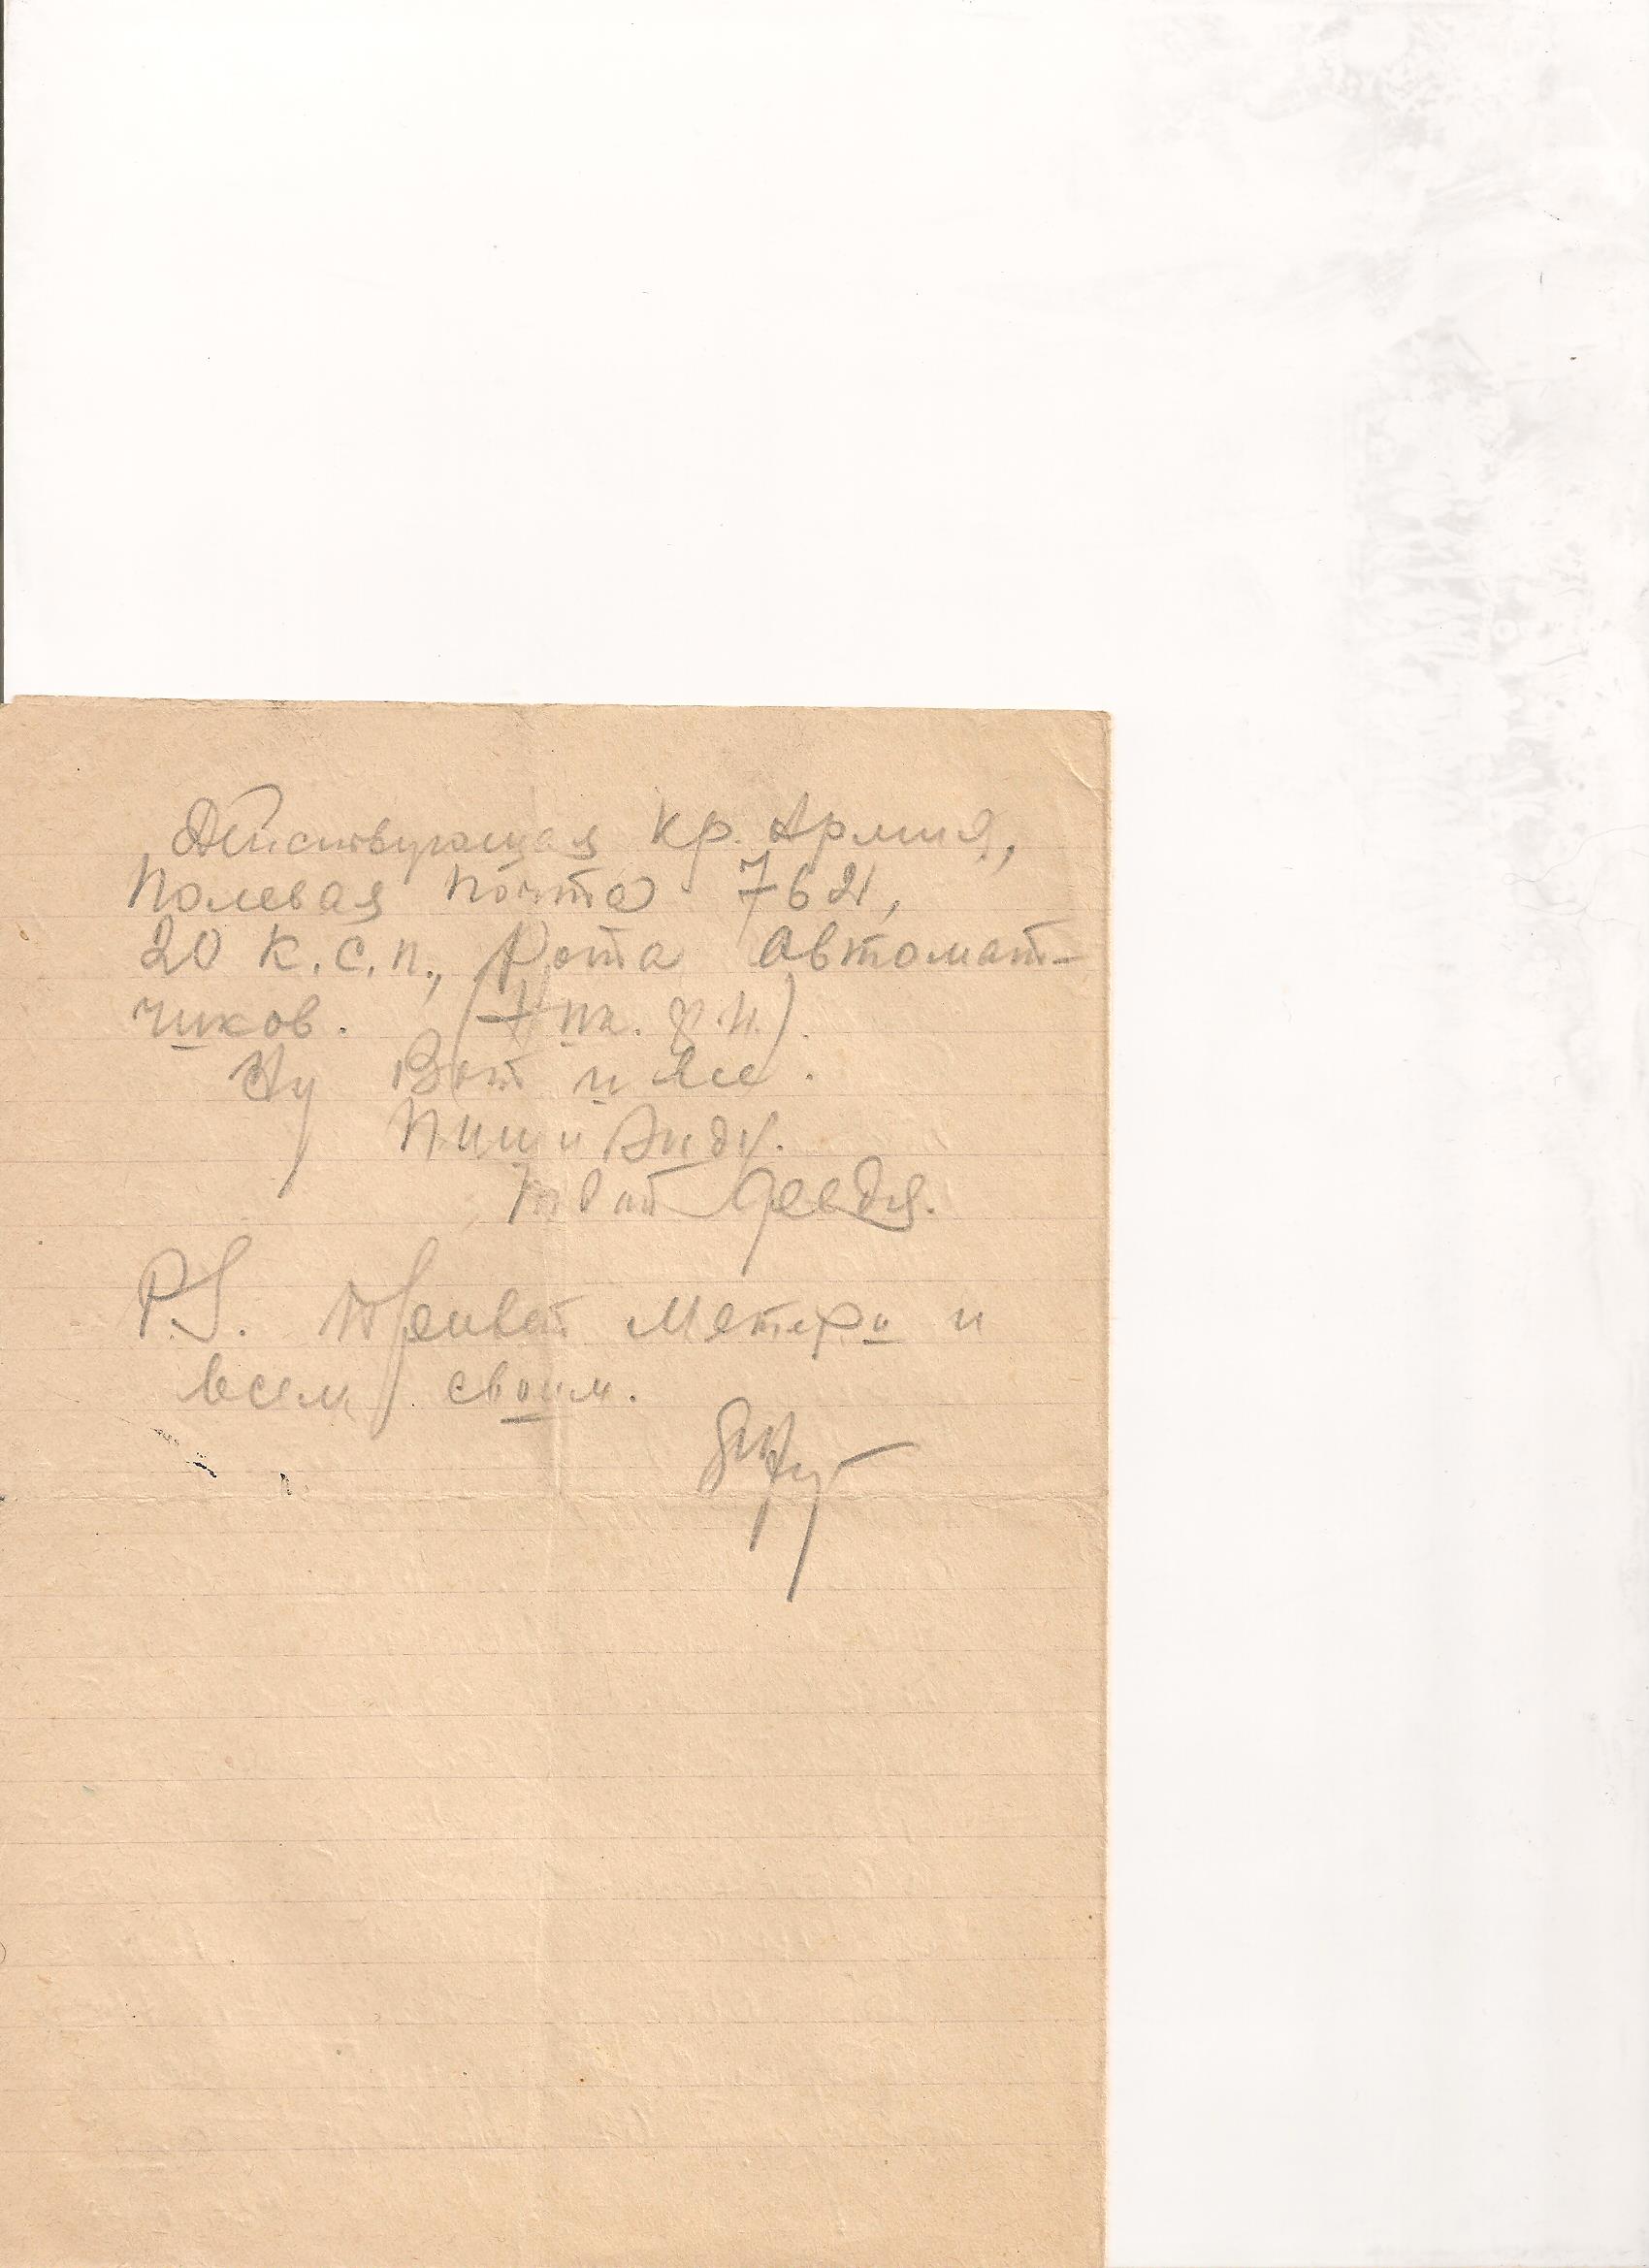 Действующая Кр. Армия,
Полевая почта 7621,
20 к.с.п., Рота автомат-
чиков.
Ну Вот и все.
Пиши жду.
Твой
P.S. Привет Матери и
всем своим.